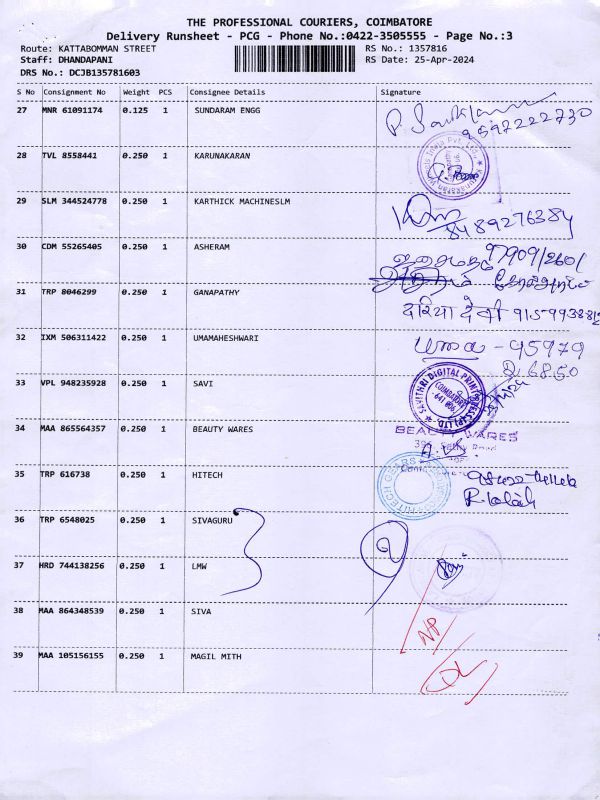 THE PROFESSIONAL COURIERS, COIMBATORE
Delivery Runsheet - PCG - Phone No.:0422-3505555 - Page No.:3
Route: KATTABOMMAN STREET RS No.: 1357816
Staff: DHANDAPANI RS Date: 25-Apr-2024
DRS No.: DCJB135781603
S No Consignment No Weight PCS Consignee Details Signature
27 MNR 61091174 0.125 1 SUNDARAM ENGG
9597222730
28 TVL 8558441 0.250 1 KARUNAKARAN
29 SLM 344524778 0.250 1 KARTHICK MACHINESLM
8489276384
30 CDM 55265405 0.250 1 ASHERAM
9790912601
31 TRP 8046299 0.250 1 GANAPATHY
दरिया देवी
32 IXM 506311422 0.250 1 UMAMAHESHWARI
உமா - 95979
33 VPL 948235928 0.250 1 SAVI
SAVITHRI DIGITAL PRINT
COIMBATORE
641 006
34 MAA 865564357 0.250 1 BEAUTY WARES
BEAUTY WARES
35 TRP 616738 0.250 1 HITECH
HITECH GEARS
36 TRP 6548025 0.250 1 SIVAGURU
37 HRD 744138256 0.250 1 LMW
38 MAA 864348539 0.250 1 SIVA
NP
39 MAA 105156155 0.250 1 MAGIL MITH